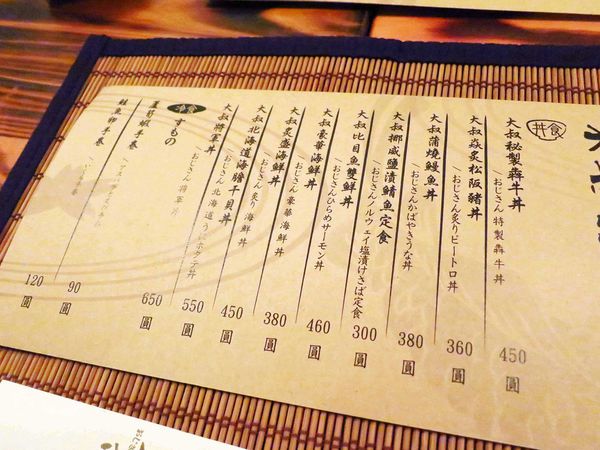 食丼
大叔秘製犇牛丼 おじさん 特製 犇牛丼 450圓
大叔焱炙松阪豬丼 おじさん炙りピートロ丼 360圓
大叔蒲燒鰻魚丼 おじさんかばやきうな丼 380圓
大叔挪威鹽漬鯖魚定食 おじさんノルウェイ塩漬けさば定食 300圓
大叔比目魚雙鮮丼 おじさんひらめサーモン丼 460圓
大叔豪華海鮮丼 おじさん 豪華 海鮮丼 380圓
大叔炙盛海鮮丼 おじさん 炙り 海鮮丼 450圓
大叔北海道海膽干貝丼 おじさん 北海道うにホタテ丼 550圓
大叔將軍丼 おじさん 将軍丼 650圓
すもの
蘆筍蝦手卷 90圓
鮭魚卵手卷 120圓